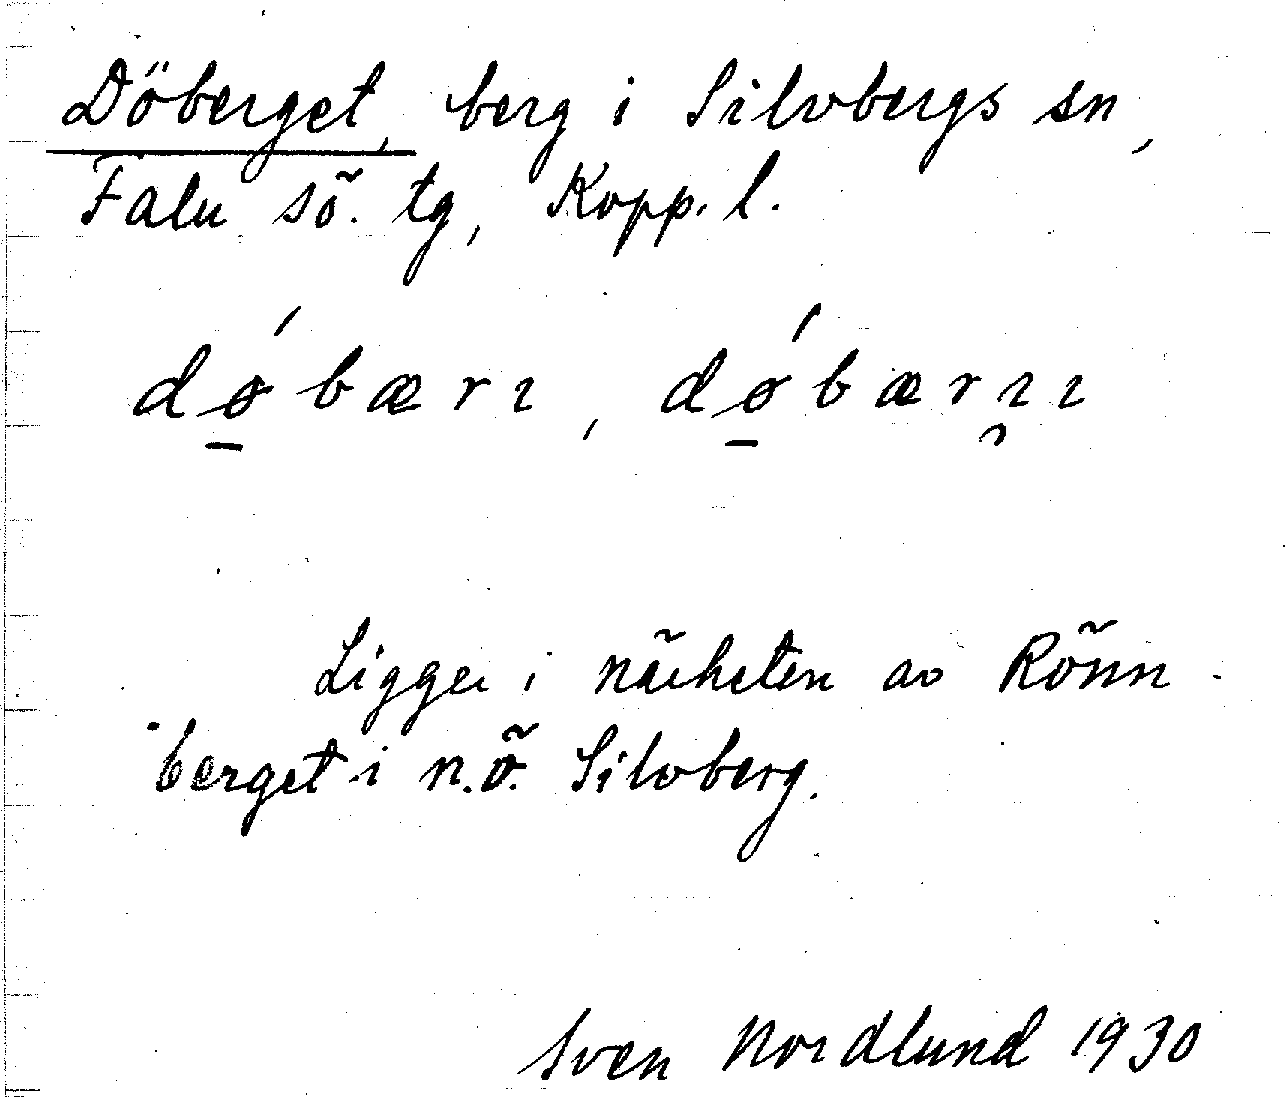 Döberget, berg i Silvbergs sn,
Falu sö. tg, Kopp. l.
dǿ̱bærı, dǿ̱bærı̯ı
Ligger i närheten av Rönn-
berget i n.ö. Silvberg.
Sven Nordlund 1930